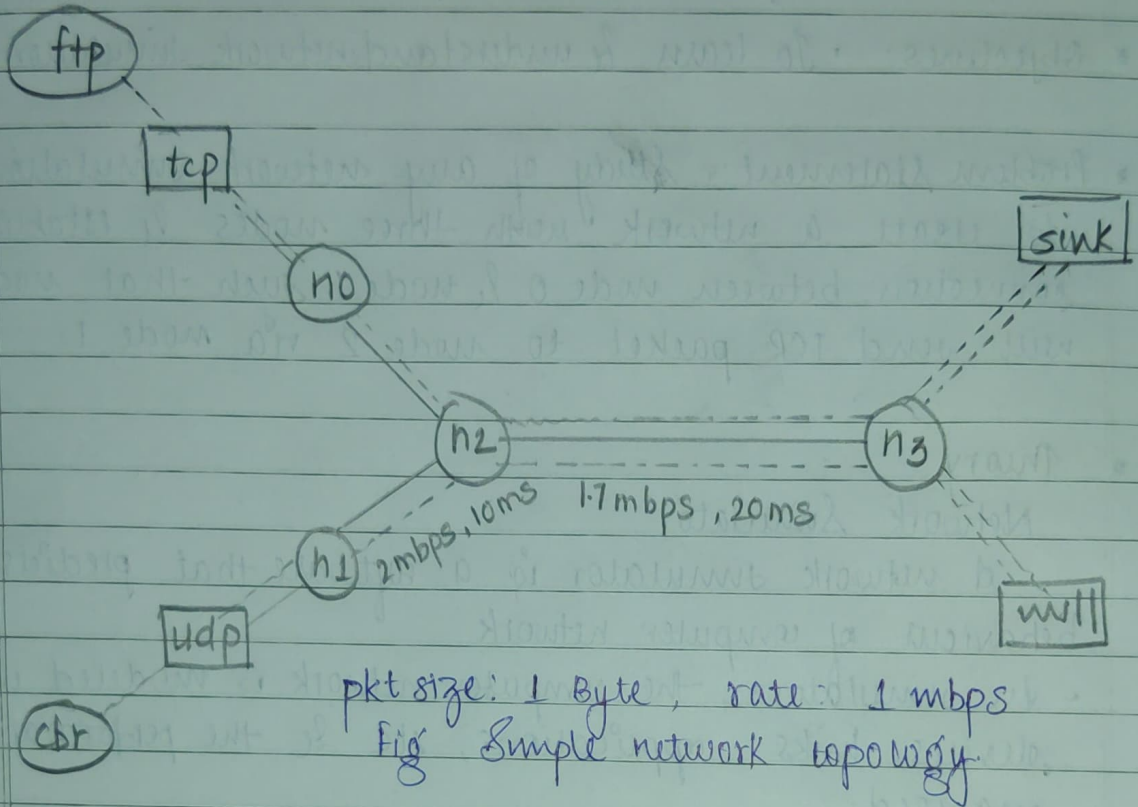 ftp
tcp
sink
n0
n2
n3
1.7mbps, 20ms
2mbps, 10ms
n1
null
udp
pkt size: 1 Byte, rate: 1 mbps
cbr
Fig Simple network topology.